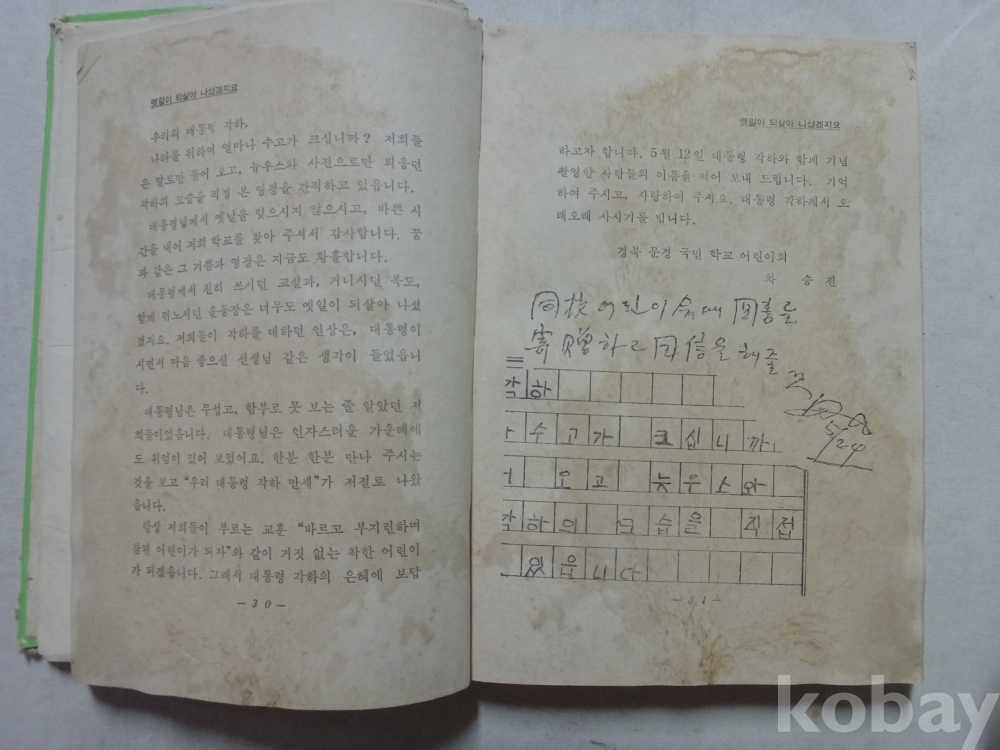 옛일이 되살아 나셨겠지요
우리의 대통령 각하,
나라를 위하여 얼마나 수고가 크십니까? 저희들
은 말로만 들어 오고, 뉴우스와 사진으로만 뵈옵던
각하의 모습을 직접 본 영광을 간직하고 있읍니다.
대통령님께서 옛날을 잊으시지 않으시고, 바쁜 시
간을 내어 저희 학교를 찾아 주셔서 감사합니다. 꿈
과 같은 그 기쁨과 영광은 지금도 황홀합니다.
대통령께서 친히 쓰시던 교실과, 거니시던 복도,
함께 뛰노시던 운동장은 너무도 옛일이 되살아 나셨
겠지요. 저희들이 각하를 대하던 인상은, 대통령이
시면서 마음 좋으신 선생님 같은 생각이 들었읍니
다.
대통령님은 무섭고, 함부로 못 보는 줄 알았던 저
희들이었읍니다. 대통령님은 인자스러운 가운데에
도 위엄이 있어 보였어요. 한분 한분 만나 주시는
것을 보고 “우리 대통령 각하 만세”가 저절로 나왔
읍니다.
항상 저희들이 부르는 교훈 “바르고 부지런하며
참된 어린이가 되자”와 같이 거짓 없는 착한 어린이
가 되겠읍니다. 그래서 대통령 각하의 은혜에 보답
— 3 0 —
옛일이 되살아 나셨겠지요
하고자 합니다. 5월 12일 대통령 각하와 함께 기념
촬영한 사람들의 이름을 적어 보내 드립니다. 기억
하여 주시고, 사랑하여 주셔요. 대통령 각하께서 오
래오래 사시기를 빕니다.
경북 문경 국민 학교 어린이회
차 승 진
同校 어린이 會에 圖書를
寄贈하고 回信을 해줄
것
5/24
각하
수고가 크십니까
오고 뉴우스와
각하의 모습을 직접
있읍니다
— 3 1 —
kobay